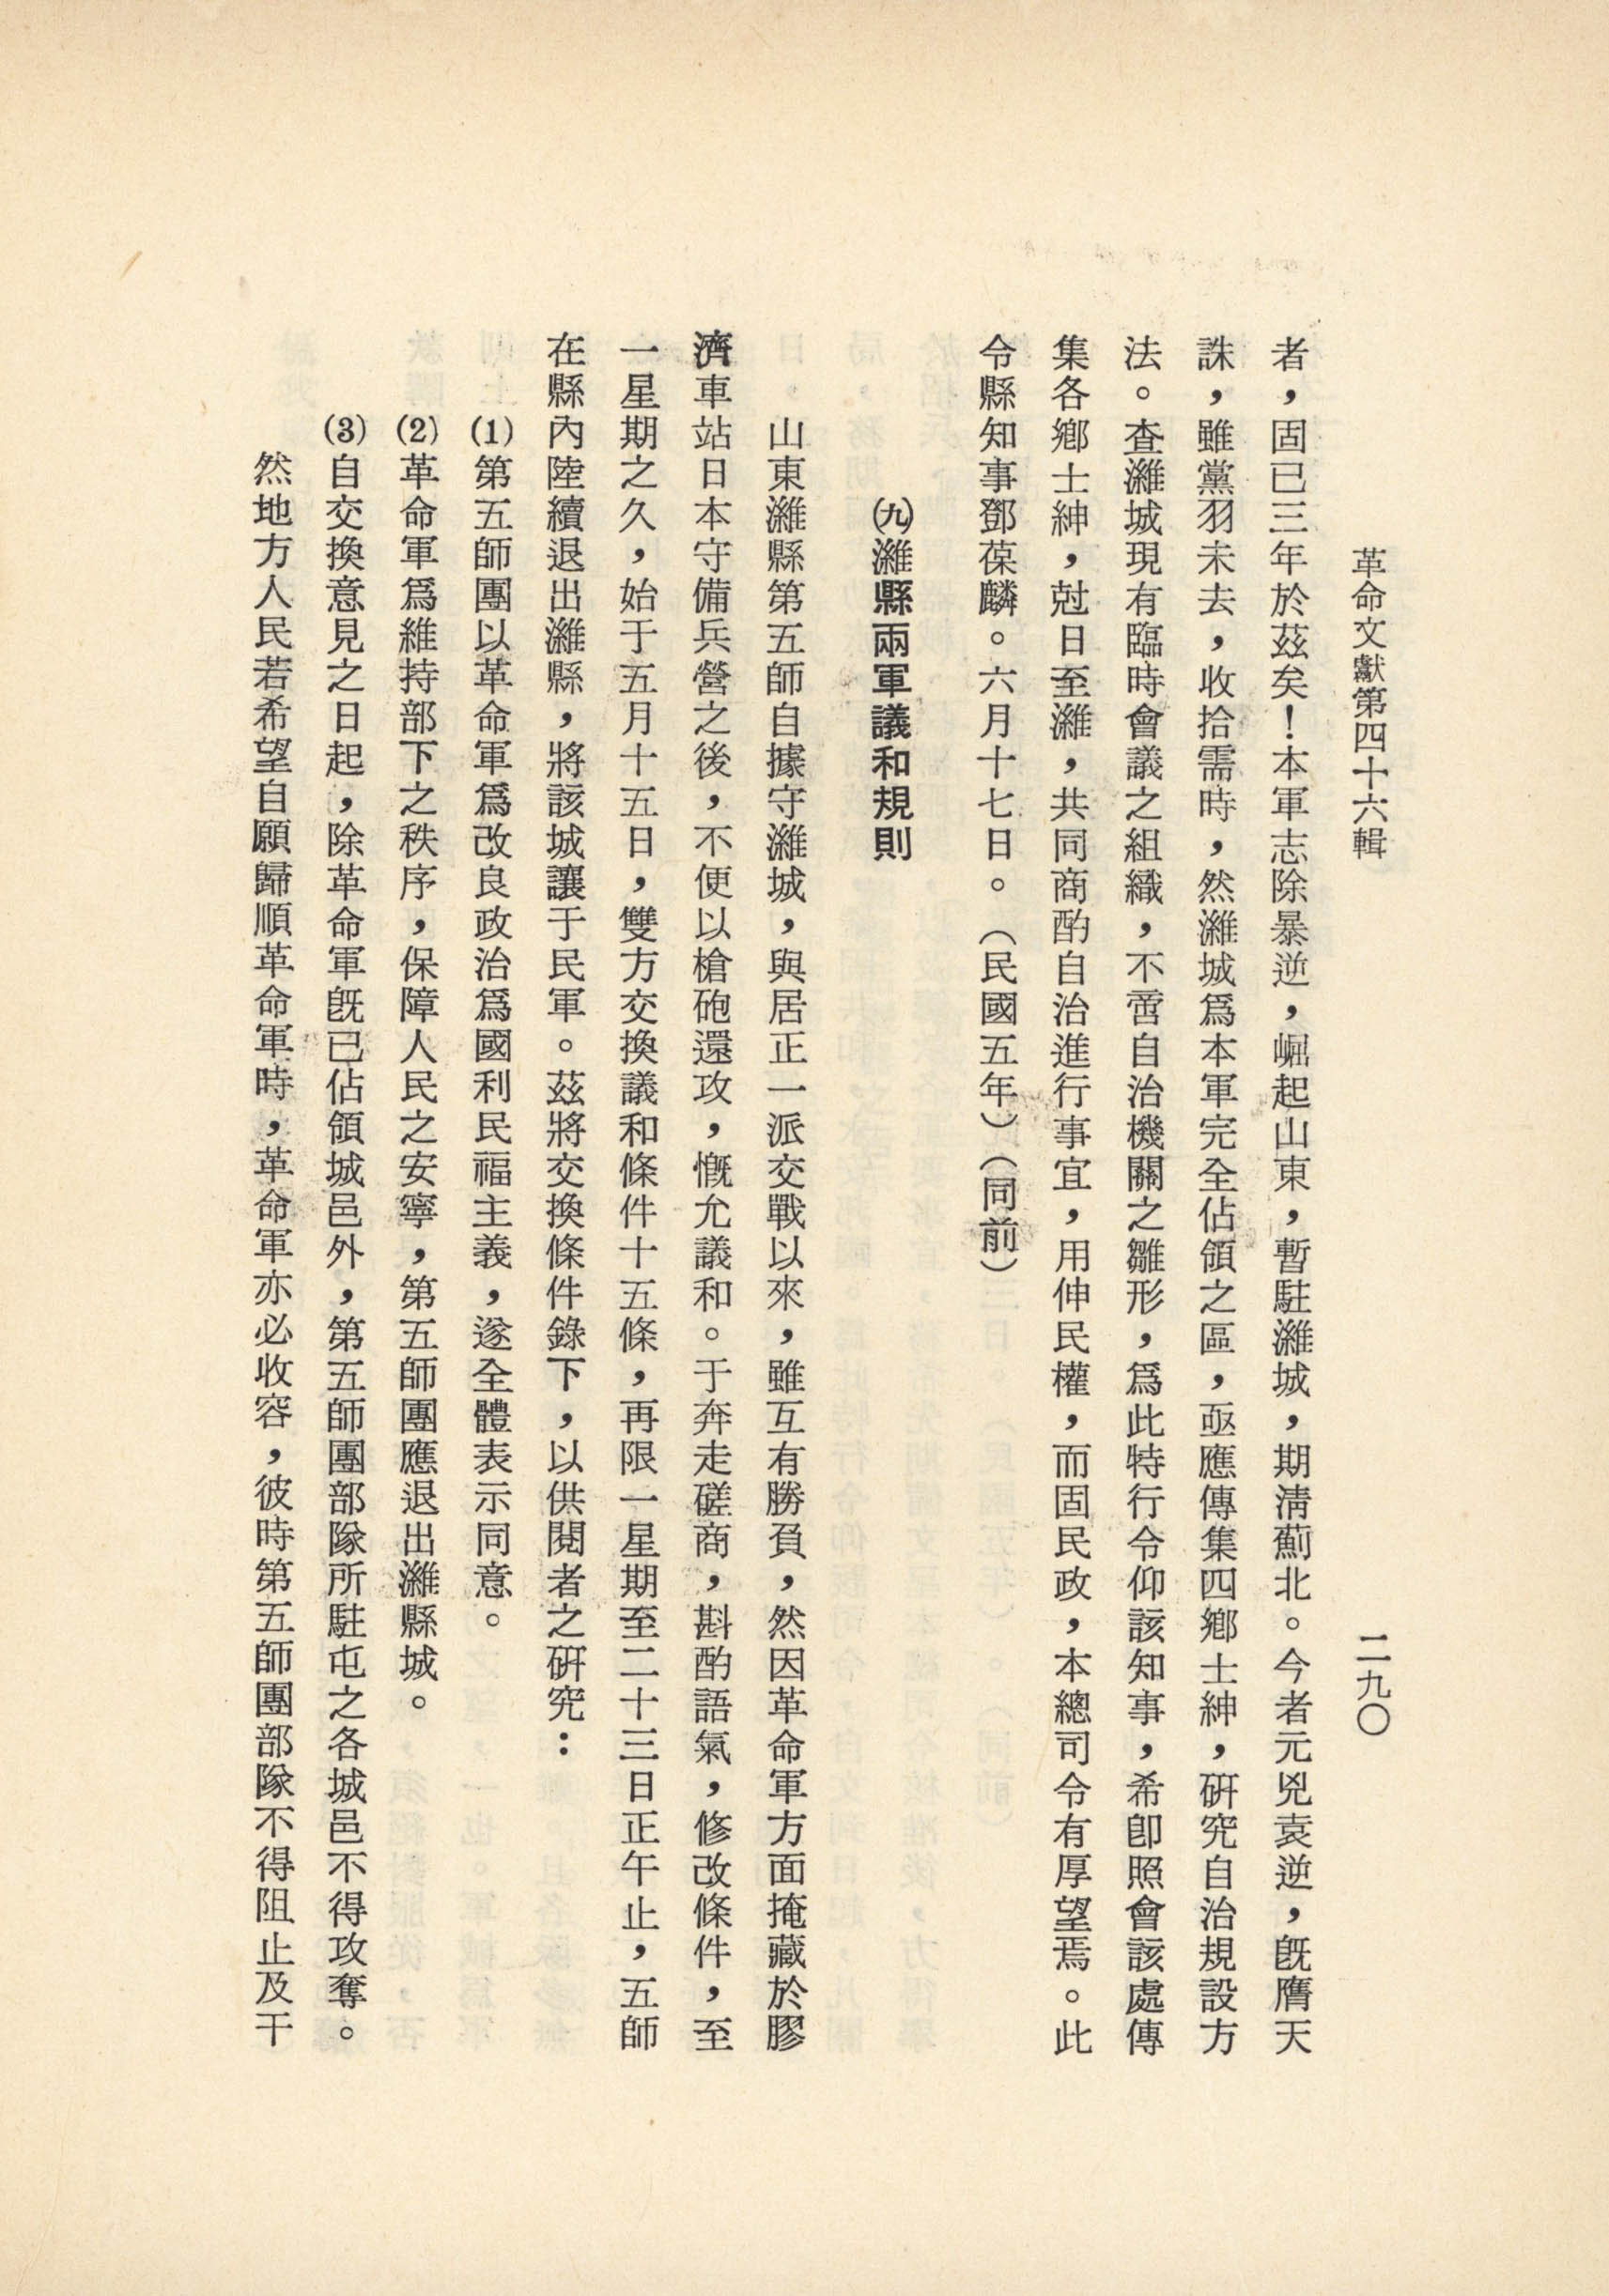 革命文獻第四十六輯
二九〇
者，固已三年於茲矣！本軍志除暴逆，崛起山東，暫駐濰城，期淸薊北。今者元兇袁逆，旣膺天
誅，雖黨羽未去，收拾需時，然濰城爲本軍完全佔領之區，亟應傳集四鄕士紳，硏究自治規設方
法。查濰城現有臨時會議之組織，不啻自治機關之雛形，爲此特行令仰該知事，希卽照會該處傳
集各鄕士紳，尅日至濰，共同商酌自治進行事宜，用伸民權，而固民政，本總司令有厚望焉。此
令縣知事鄧葆麟。六月十七日。（民國五年）（同前）
㈨濰縣兩軍議和規則
山東濰縣第五師自據守濰城，與居正一派交戰以來，雖互有勝負，然因革命軍方面掩藏於膠
濟車站日本守備兵營之後，不便以槍砲還攻，慨允議和。于奔走磋商，斟酌語氣，修改條件，至
一星期之久，始于五月十五日，雙方交換議和條件十五條，再限一星期至二十三日正午止，五師
在縣內陸續退出濰縣，將該城讓于民軍。茲將交換條件錄下，以供閱者之硏究：
⑴第五師團以革命軍爲改良政治爲國利民福主義，遂全體表示同意。
⑵革命軍爲維持部下之秩序，保障人民之安寧，第五師團應退出濰縣城。
⑶自交換意見之日起，除革命軍旣已佔領城邑外，第五師團部隊所駐屯之各城邑不得攻奪。
然地方人民若希望自願歸順革命軍時，革命軍亦必收容，彼時第五師團部隊不得阻止及干